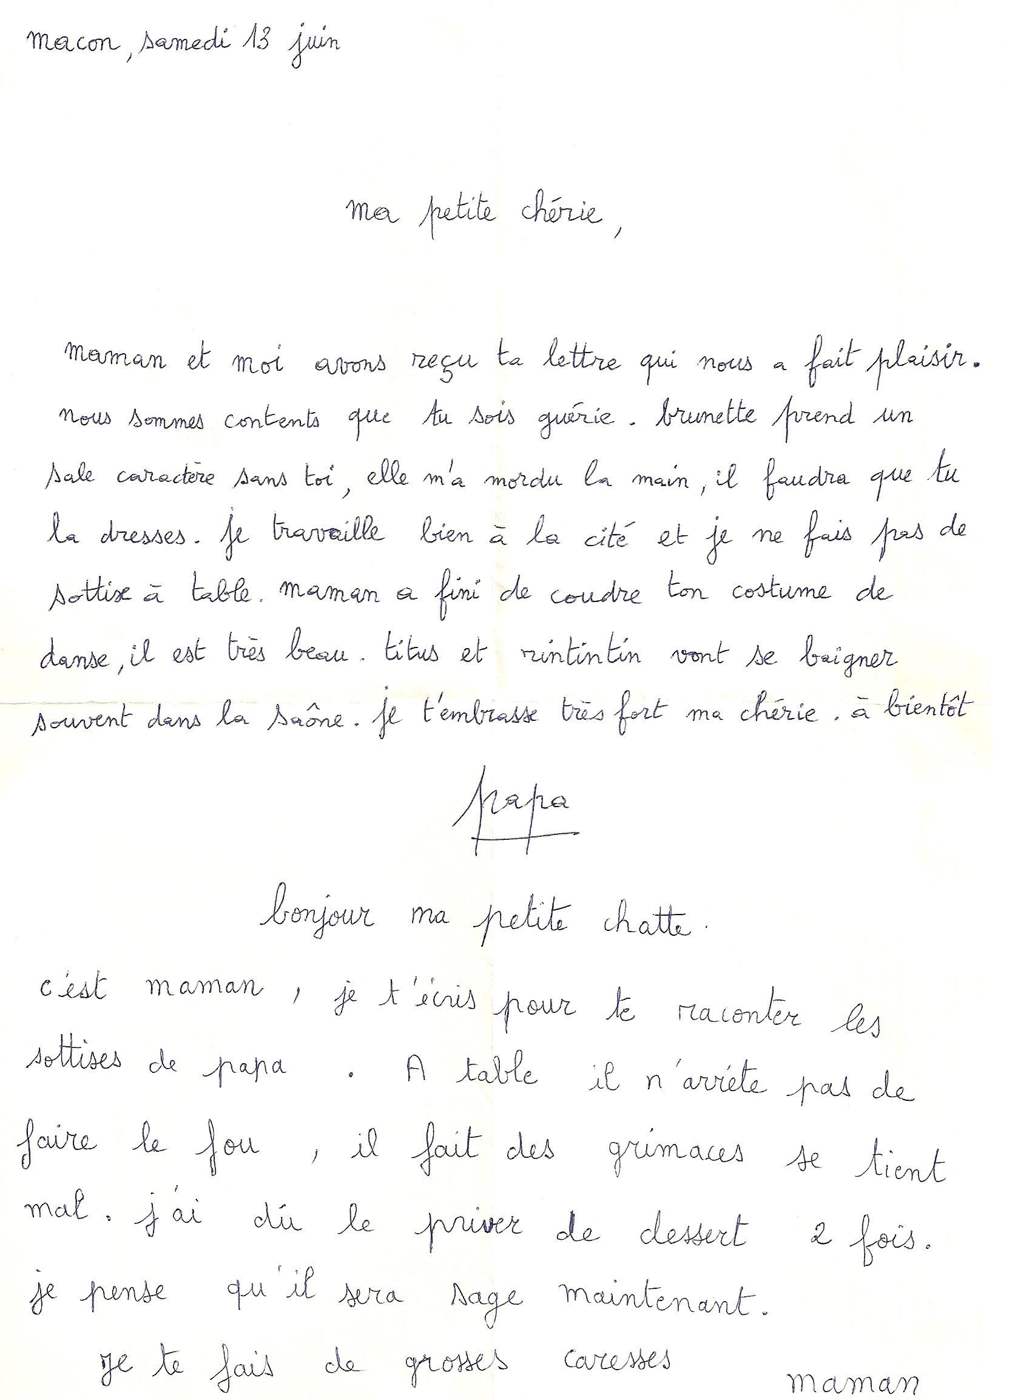 macon, samedi 13 juin
ma petite chérie,
maman et moi avons reçu ta lettre qui nous a fait plaisir.
nous sommes contents que tu sois guérie. brunette prend un
sale caractère sans toi, elle m'a mordu la main, il faudra que tu
la dresses. je travaille bien à la cité et je ne fais pas de
sottise à table. maman a fini de coudre ton costume de
danse, il est très beau. titus et rintintin vont se baigner
souvent dans la saône. je t'embrasse très fort ma chérie. à bientôt
papa
bonjour ma petite chatte.
c'est maman, je t'écris pour te raconter les
sottises de papa. A table il n'arréte pas de
faire le fou, il fait des grimaces se tient
mal. j'ai dú le priver de dessert 2 fois.
je pense qu'il sera sage maintenant.
Je te fais de grosses caresses
maman